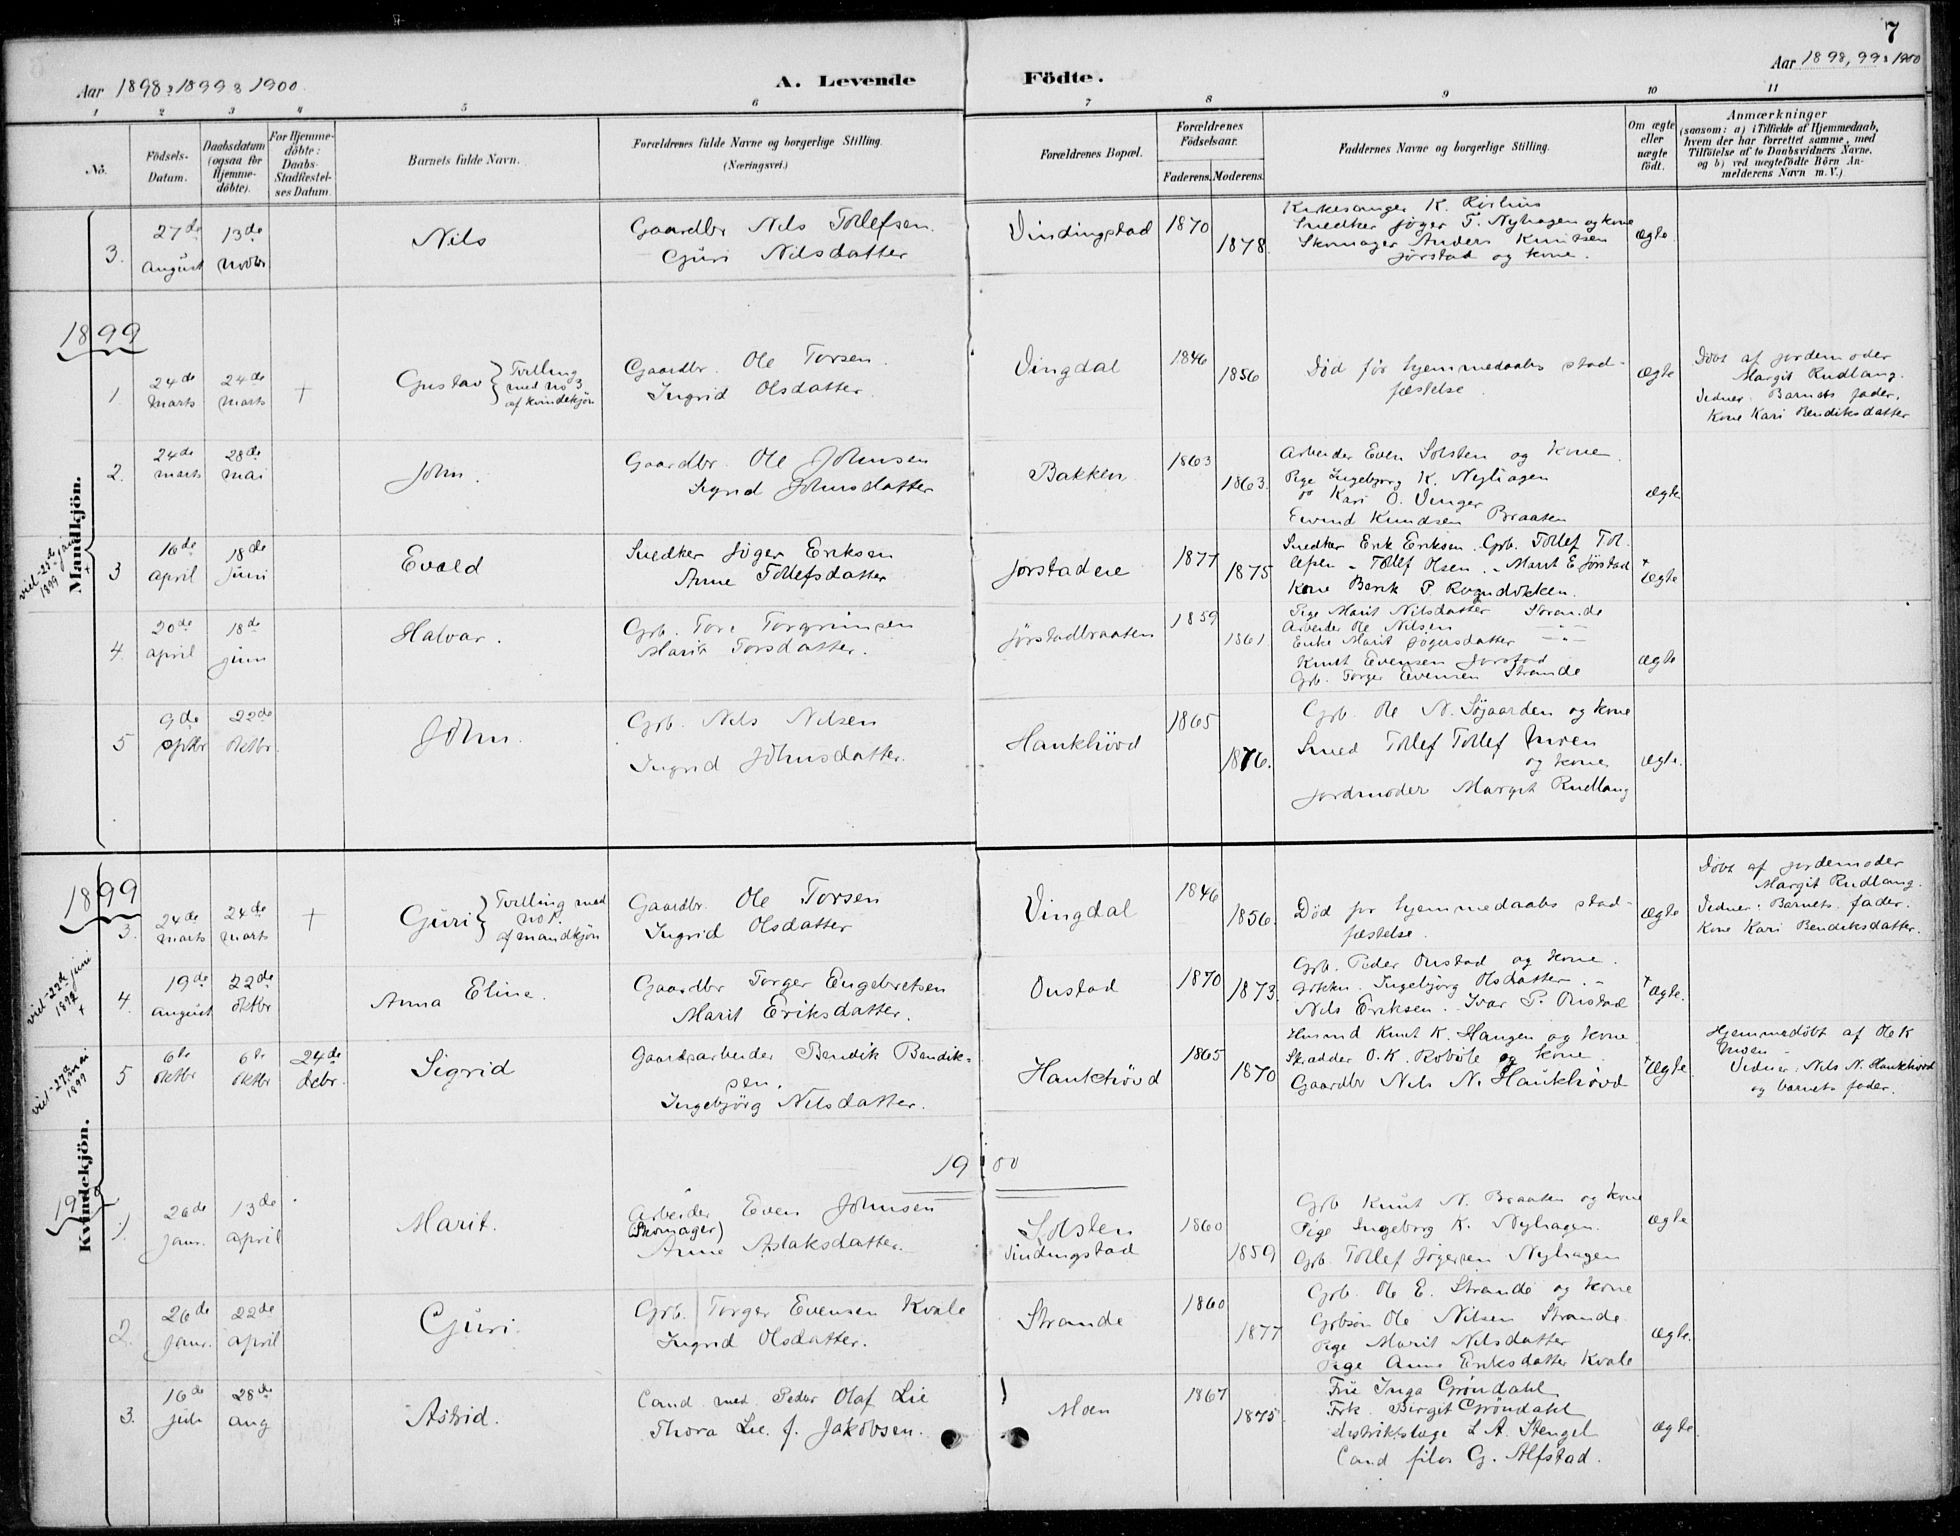 7
Aar 1898, 1899 & 1900
A. Levende
Födte.
Aar 1898, 99 & 1900
1 2 3 4 5 6 7 8 9 10 11
No.
Födsels-
Datum.
Daabsdatum
(ogsaa for
Hjemme-
döbte).
For Hjemme-
döbte:
Daabs-
Stadfæstel-
ses Datum.
Barnets fulde Navn.
Forældrenes fulde Navne og borgerlige Stilling.
(Næringsvei.)
Forældrenes Bopæl.
Forældrenes
Födselsaar.
Faderens. Moderens.
Faddernes Navne og borgerlige Stilling.
Om ægte
eller
uægte
födt.
Anmærkninger
(saasom: a) i Tilfælde af Hjemmedaab,
hvem der har forrettet samme, med
Tilföielse af to Daabsvidners Navne,
og b) ved uægtefödte Börn An-
melderens Navn m. V.)
Mandkjön.
3. 27de august 13de novbr Nils
Gaardbr Nils Tollefsen
Guri Nilsdatter
Vindingstad 1870 1878.
Kirkesanger K.
Snedker Jøger T. Nyhagen og kone
Skomager Anders Knutsen
Jørstad og kone.
ægte
1899
1. 24de marts 24de marts + Gustav } Tvilling
med no 3
af kvindekjön
Gaardbr. Ole Torsen.
Ingrid Olsdatter.
Vingdal 1846 1856
Død før hjemmedaabs stad-
fæstelse.
ægte
Døbt af jordemoder
Margit Rudlang.
Vidner: Barnets fader,
Kone Kari Bendiksdatter
2. 24de marts 28de mai John.
Gaardbr. Ole Johnsen
Sigrid Johnsdatter
Bakken 1863 1863.
Arbeider Even Solsten og kone.
Pige Ingebjørg K. Nyhagen
" Kari O. Vinger
Eivind Knudsen Braaten
ægte
viet 25de jan 1899 +
3 16de april 18de juni Evald
Snedker Jøger Eriksen
Anne Tollefsdatter
Jørstadeie 1877 1875
Snedker Erik Eriksen. Grb. Tollef Tol-
lefsen - Tollef Olsen. - Marit E Jørstad
Kone Berit P Rogndokken.
+ ægte
4. 20de april 18de juni Halvar.
Grb. Tore Torgrimsen
Marit Torsdatter.
Jørstadbraaten 1859 1861
Pige Marit Nilsdatter Strande
Arbeider Ole Nilsen - " -
Enke Marit Jøgersdatter - " -
Knut Evensen Jørstad
Grb. Torger Evensen Strande
ægte
5 9de sptbr 22de oktbr. John.
Grb. Nils Nilsen
Ingrid Johnsdatter.
Haukhøvd 1865 1876.
Grb. Ole N. Søgaarden og kone
Smed Tollef Tollef
og kone
Jordmoder Margit Rudlang
ægte.
Kvindekjön.
1899
3. 24de marts 24de marts + Guri } Tvilling med
no 1.
af mandkjön
Gaardbr. Ole Torsen
Ingrid Olsdatter
Vingdal 1846 1856.
Død før hjemmedaabs stad-
fæstelse.
ægte
Døbt af jordemoder
Margit Rudlang.
Vidner: Barnets fader.
Kone Kari Bendiksdatter.
viet 22de juni +
4. 19de august 22de oktbr Anna Eline.
Gaardbr Torger Engebretsen
Marit Eriksdatter.
Onstad 1870 1873.
Grb. Peder Onstad og kone.
Ingebjørg Olsdatter
Nils Eriksen. Ivar P. Onstad
+ ægte.
viet mai 1899
5 6te oktbr 6te oktbr 24de debr. Sigrid
Gaardsarbeider Bendik Bendik-
sen.
Ingebjørg Nilsdatter.
Haukhøvd 1865 1870
Husmd Knut K. Haugen og kone
Skrædder O.K. Robøle og kone.
Gaardbr Nils N. Haukhøvd
+ ægte.
Hjemmedøbt af Ole K
Vidner: Nils N. Haukhøvd
og barnets fader.
1900
19
1. 20de janr. 13de april Marit.
Arbeider Even Johnsen
(Skomager)
Anne Aslaksdatter.
Solsten
Vindingstad
1860 1859
Grb Knut N. Braaten og kone
Pige Ingeborg K. Nyhagen.
Grb. Tollef Jøgersen Nyhagen
ægte
2. 26de janr. 22de april Guri.
Grb. Torger Evensen Kvale
Ingrid Olsdatter.
Strande 1860 1877
Grb. Ole E. Strande og kone
Grbsøn Ole Nilsen Strande
Pige Marit Nilsdatter
Pige Anne Eriksdatter Kvale
ægte.
3. 16de juli 28de aug Astrid.
Cand. med. Peder Olaf Lie
Thora Lie. f. Jakobsen.
Moen 1867 1875
Frue Inga Grøndahl
Frk. Birgit Grøndahl
Distriktslæge L. A. Stengel
Cand filos G. Alfstad.
ægte